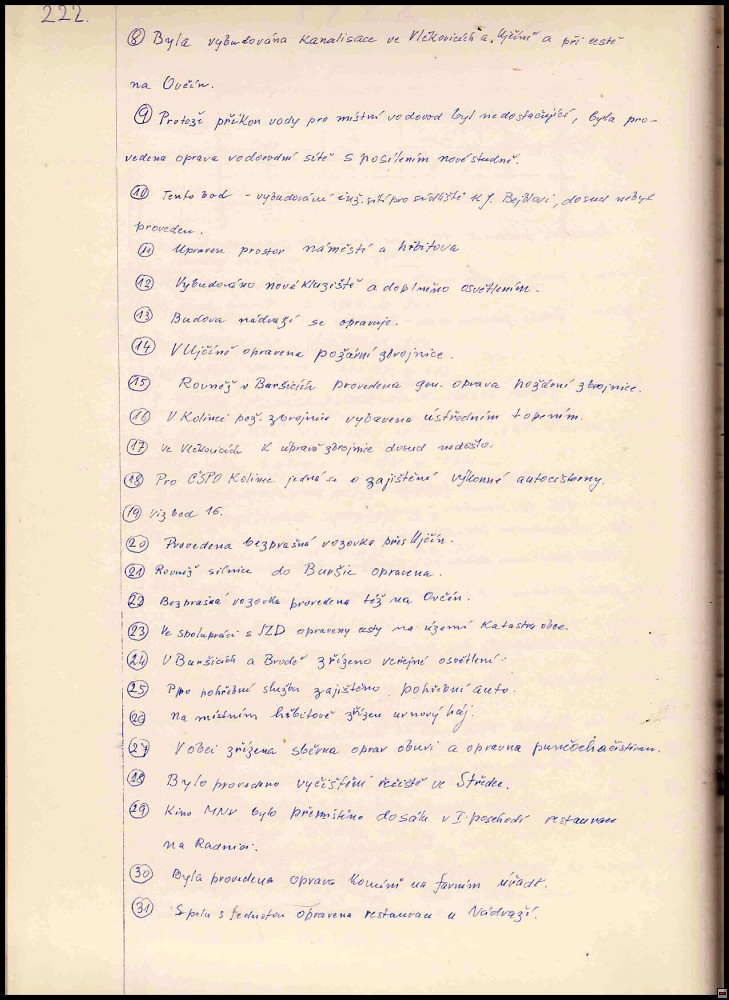 222.
⑧ Byla vybudována kanalisace ve Vlčkovicích a Ujčíně a při cestě
na Ovčín.
⑨ Protože příkon vody pro místní vodovod byl nedostačující, byla pro-
vedena oprava vodovodní sítě s posílením nové studně.
⑩ Tento bod - vybudování inž. sítí pro sídliště K J. Bejblovi, dosud nebyl
proveden.
⑪ Upraven prostor náměstí a hřbitova
⑫ Vybudováno nové kluziště a doplněno osvětlením.
⑬ Budova nádraží se opravuje.
⑭ V Ujčíně opravena požární zbrojnice.
⑮ Rovněž v Buršicích provedena gen. oprava požární zbrojnice.
⑯ V Kolinci pož. zbrojnice vybavena ústředním topením.
⑰ Ve Vlčkovicích k úpravě zbrojnice dosud nedošlo.
⑱ Pro ČSPO Kolinec jedná se o zajištění výkonné autocisterny.
⑲ Viz bod 16.
⑳ Provedena bezprašná vozovka přes Ujčín.
㉑ Rovněž silnice do Buršic opravena.
㉒ Bezprašná vozovka provedena též na Ovčín.
㉓ Ve spolupráci s JZD opraveny cesty na území Katastru obce.
㉔ V Buršicích a Brodě zřízeno veřejné osvětlení.
㉕ Pro pohřební službu zajištěno pohřební auto.
㉖ Na místním hřbitově zřízen urnový háj.
㉗ V obci zřízena sběrna oprav obuvi a opravna punčoch a čistírna.
㉘ Bylo provedeno vyčištění řečiště ve Středu.
㉙ Kino MNV bylo přemístěno do sálu v I. poschodí restaurace
na Radnici.
㉚ Byla provedena oprava komínů na farním úřadě.
㉛ Spolu s Jednotou opravena restaurace u Nádraží.